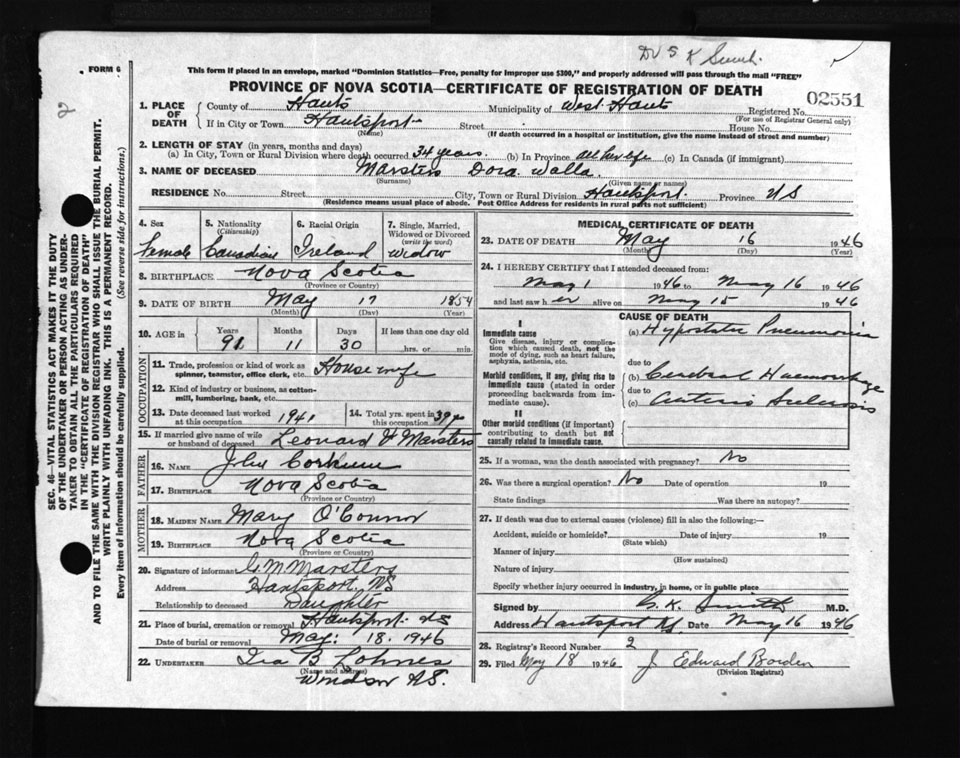 Dr S K Smith
FORM 6
2
This form if placed in an envelope, marked "Dominion Statistics—Free, penalty for improper use $300," and properly addressed will pass through the mail "FREE"
PROVINCE OF NOVA SCOTIA—CERTIFICATE OF REGISTRATION OF DEATH
02551
1. PLACE OF DEATH County of Hants Municipality of West Hants Registered No.
(For use of Registrar General only)
If in City or Town Hantsport Street House No.
(Name) (If death occurred in a hospital or institution, give the name instead of street and number)
2. LENGTH OF STAY (in years, months and days)
(a) In City, Town or Rural Division where death occurred 34 years. (b) In Province All her life (c) In Canada (if immigrant)
3. NAME OF DECEASED Marsters Dora Walla
(Surname) (Given name or names)
RESIDENCE No. Street City, Town or Rural Division Hantsport Province NS
(Residence means usual place of abode. Post Office Address for residents in rural parts not sufficient)
4. Sex Female
5. Nationality (Citizenship) Canadian
6. Racial Origin Ireland
7. Single, Married, Widowed or Divorced (write the word) Widow
8. BIRTHPLACE Nova Scotia
(Province or Country)
9. DATE OF BIRTH May 17 1854
(Month) (Day) (Year)
10. AGE in Years Months Days If less than one day old
91 11 30 hrs. or min.
OCCUPATION
11. Trade, profession or kind of work as spinner, teamster, office clerk, etc. House wife
12. Kind of industry or business, as cotton-mill, lumbering, bank, etc.
13. Date deceased last worked at this occupation 1941
14. Total yrs. spent in this occupation
15. If married give name of wife or husband of deceased Leonard H Marsters
FATHER
16. NAME John Corkum
17. BIRTHPLACE Nova Scotia
(Province or Country)
MOTHER
18. MAIDEN NAME Mary O'Connor
19. BIRTHPLACE Nova Scotia
(Province or Country)
20. Signature of informant G M Marsters
Address Hantsport, NS
Relationship to deceased Daughter
21. Place of burial, cremation or removal Hantsport NS
Date of burial or removal May. 18. 1946
22. UNDERTAKER Ira B Lohnes
(Name and address)
Windsor NS.
MEDICAL CERTIFICATE OF DEATH
23. DATE OF DEATH May 16 1946
(Month) (Day) (Year)
24. I HEREBY CERTIFY that I attended deceased from:
May 1 1946 to May 16 1946
and last saw her alive on May 15 1946
CAUSE OF DEATH
I
Immediate cause
Give disease, injury or complication which caused death, not the mode of dying, such as heart failure, asphyxia, asthenia, etc.
(a) Hypostatic Pneumonia
due to
Morbid conditions, if any, giving rise to immediate cause (stated in order proceeding backwards from immediate cause).
(b) Cerebral Haemorrhage
due to
(c) Arterio Sclerosis
II
Other morbid conditions (if important) contributing to death but not causally related to immediate cause.
25. If a woman, was the death associated with pregnancy? No
26. Was there a surgical operation? No Date of operation 19
State findings Was there an autopsy?
27. If death was due to external causes (violence) fill in also the following:—
Accident, suicide or homicide? Date of injury 19
(State which)
Manner of injury
(How sustained)
Nature of injury
Specify whether injury occurred in industry, in home, or in public place
Signed by S. K. Smith M.D.
Address Hantsport NS Date May 16 1946
28. Registrar's Record Number 2
29. Filed May 18 1946 J Edward Borden
(Division Registrar)
SEC. 46—VITAL STATISTICS ACT MAKES IT THE DUTY
OF THE UNDERTAKER OR PERSON ACTING AS UNDER-
TAKER TO OBTAIN ALL THE PARTICULARS REQUIRED
IN THE "CERTIFICATE OF REGISTRATION OF DEATH"
AND TO FILE THE SAME WITH THE DIVISION REGISTRAR WHO SHALL ISSUE THE BURIAL PERMIT.
WRITE PLAINLY WITH UNFADING INK. THIS IS A PERMANENT RECORD.
Every item of information should be carefully supplied. (See reverse side for instructions.)